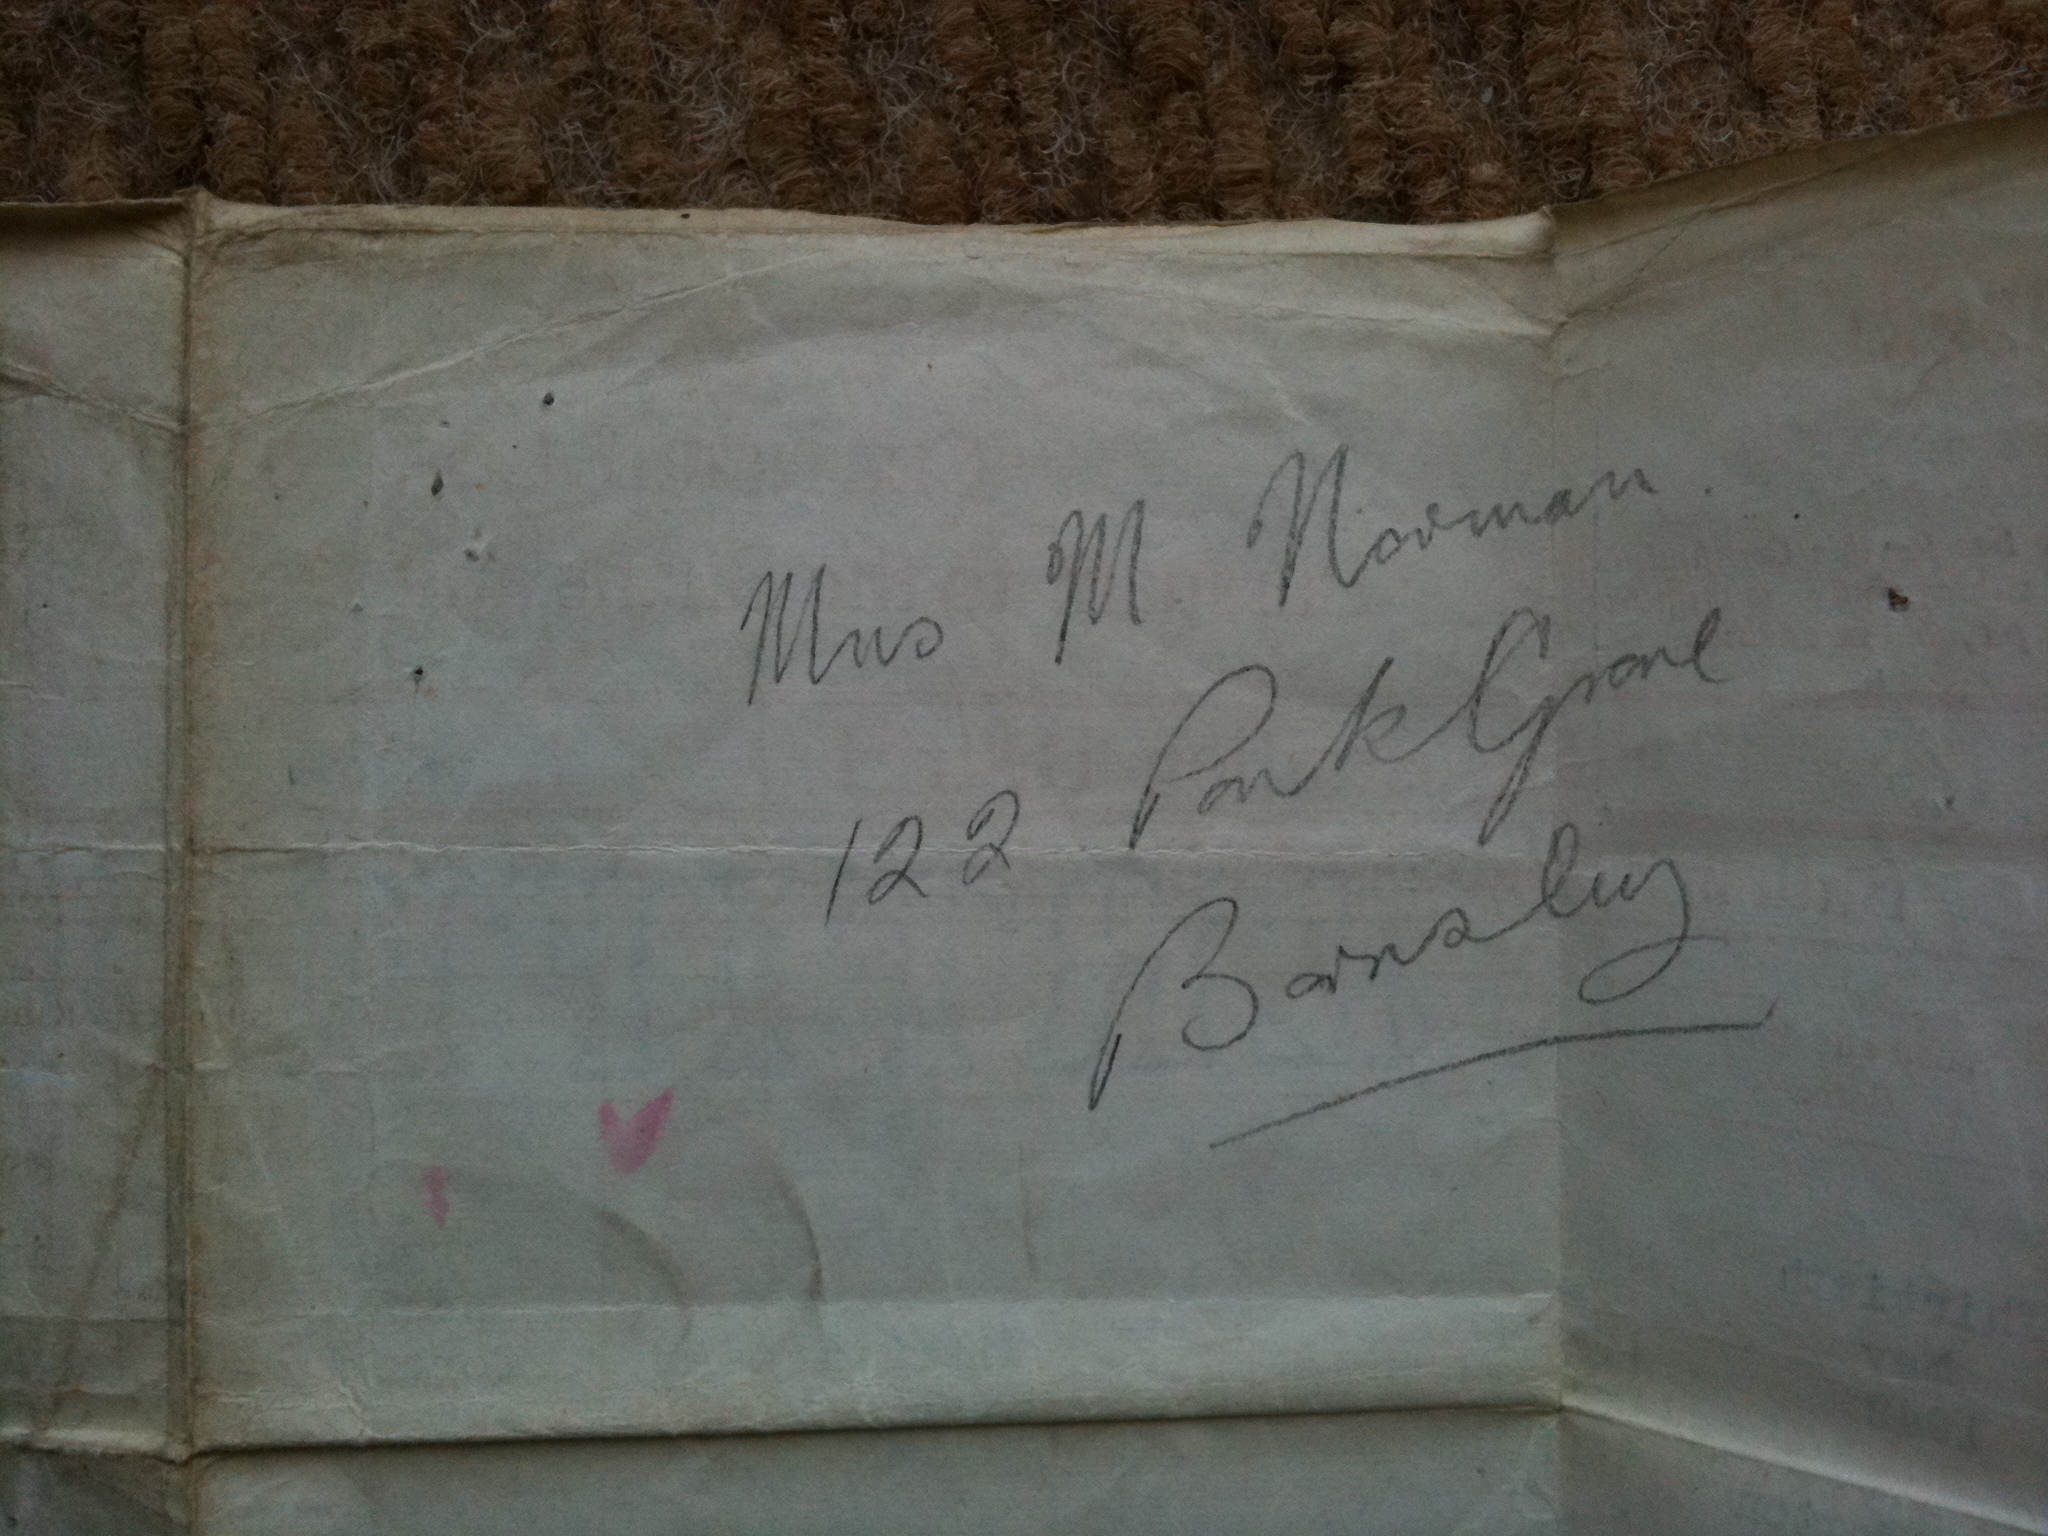 Mrs M Norman.
122 Park Grove
Barnsley